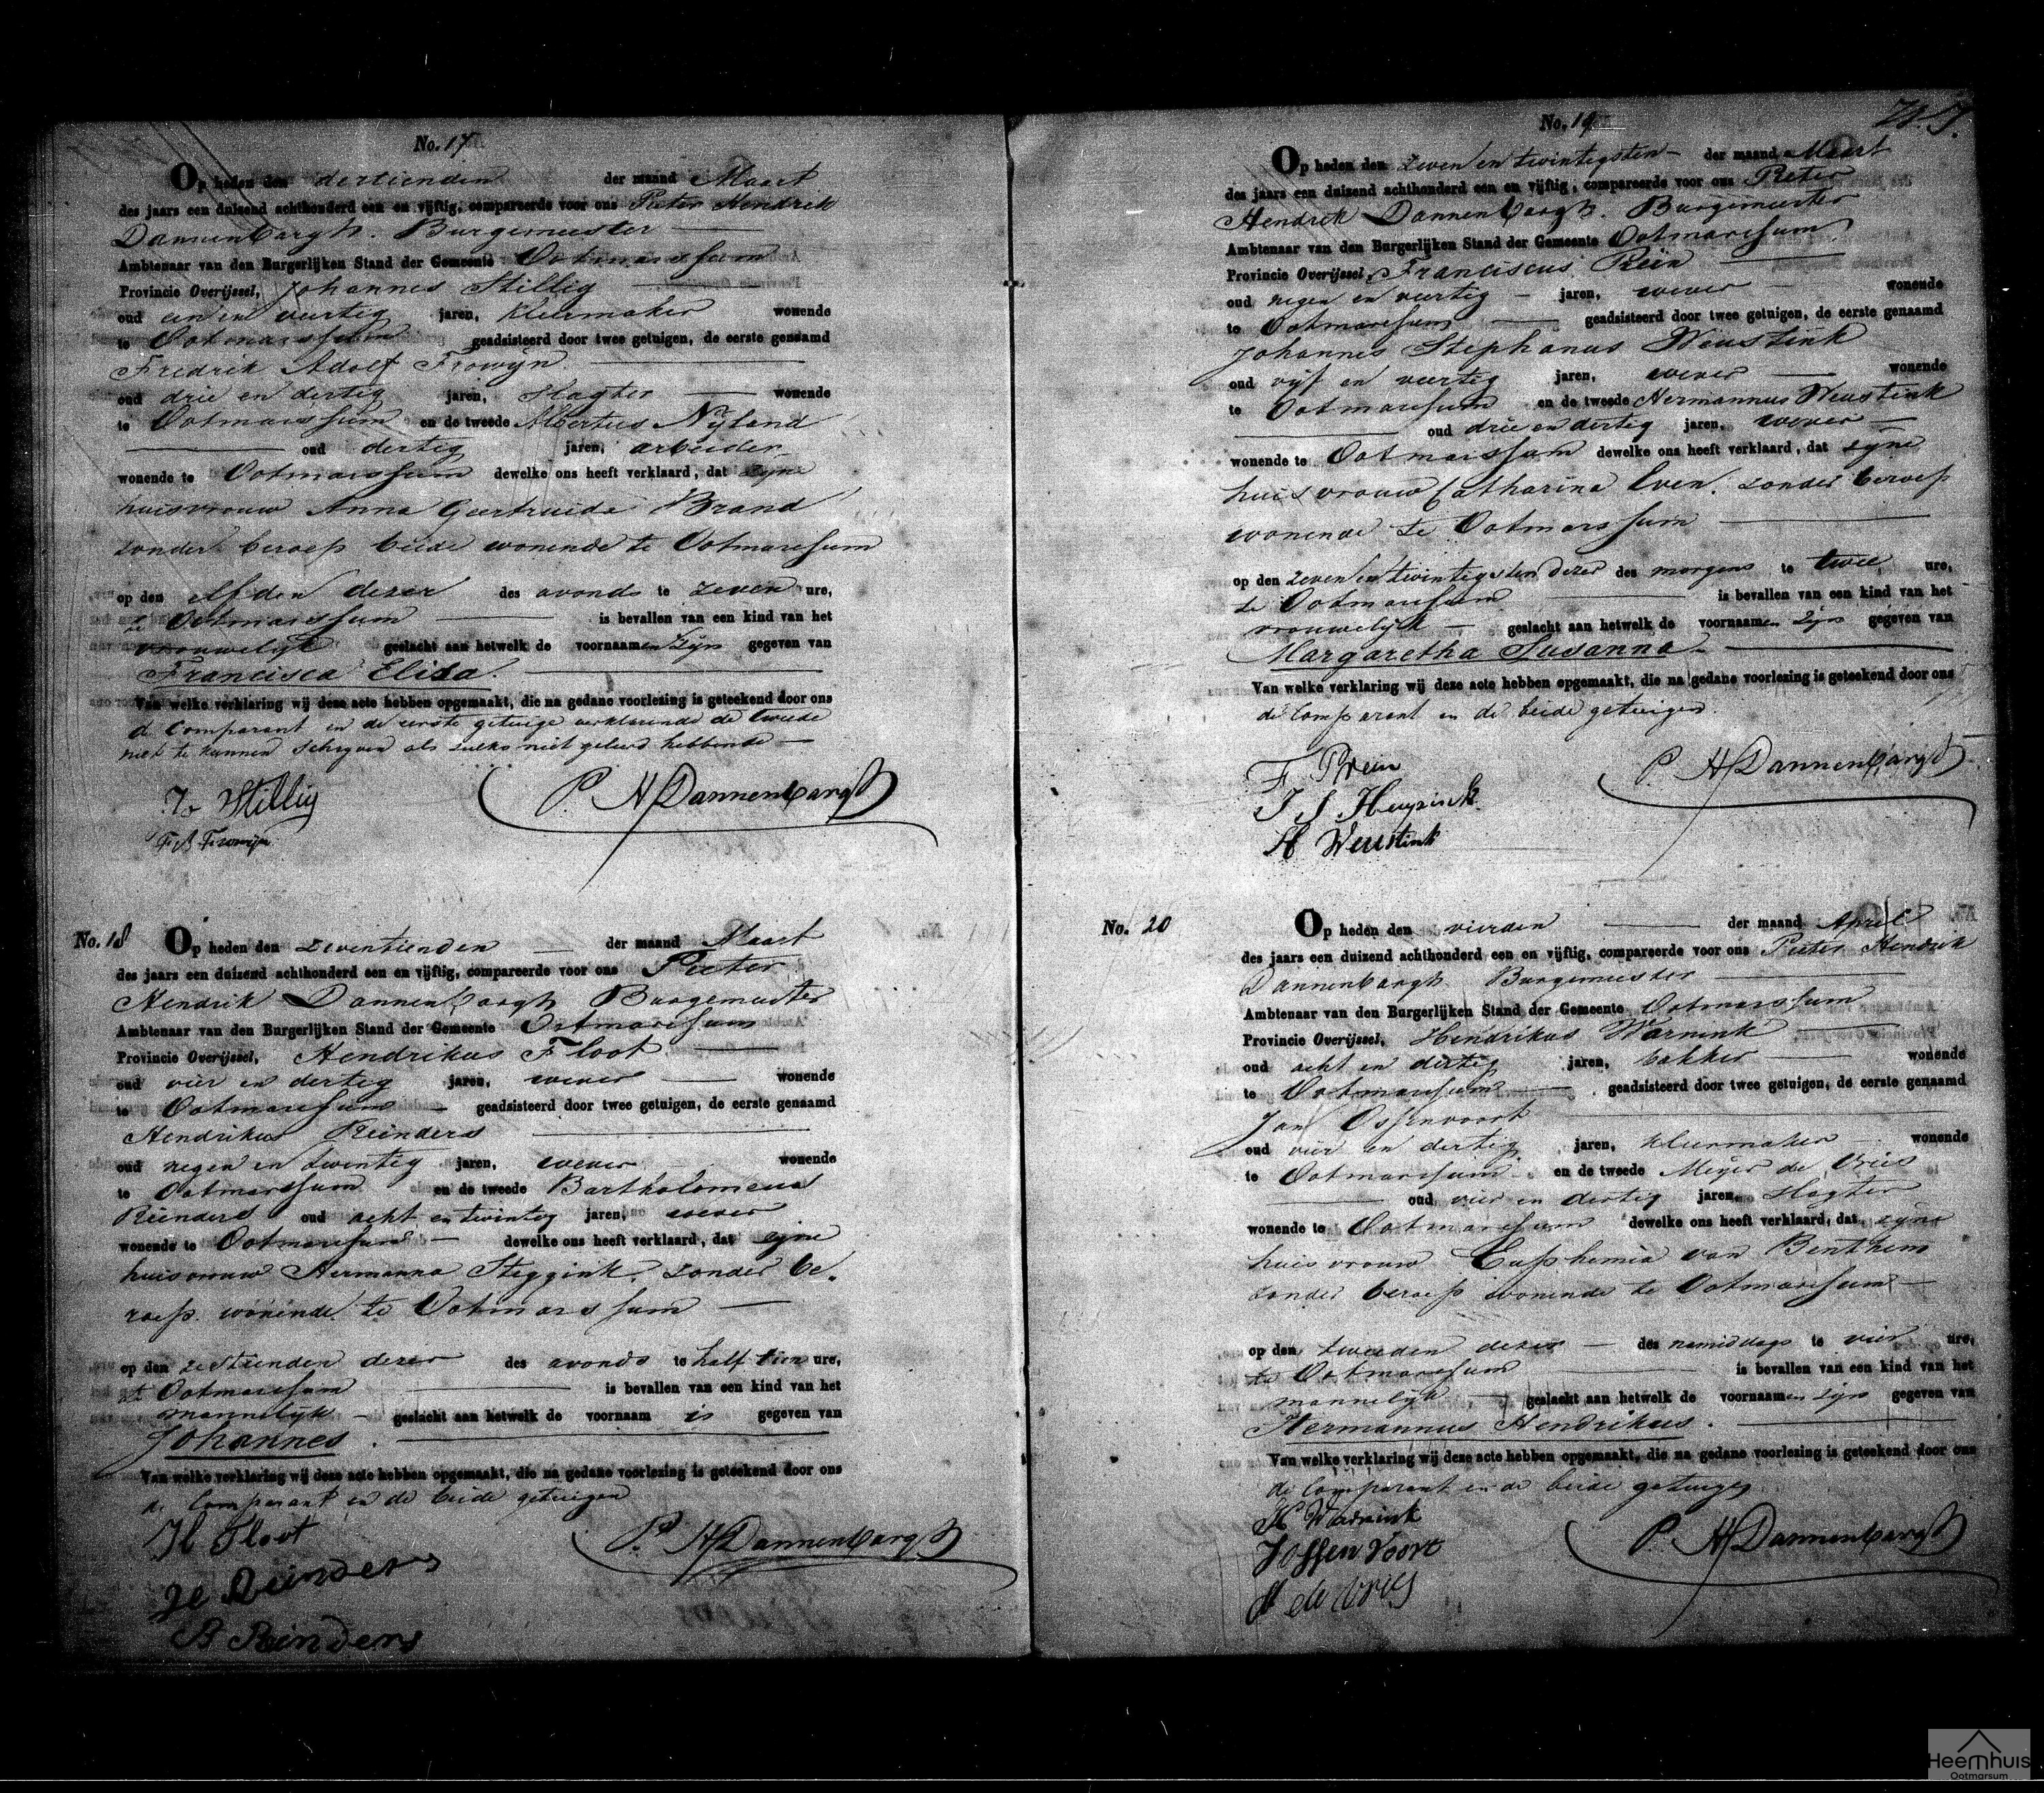 No. 17
Op heden den dertienden der maand Maart
des jaars een duizend achthonderd een en vijftig, compareerde voor ons Pieter Hendrik
Dannenbargh. Burgemeester
Ambtenaar van den Burgerlijken Stand der Gemeente Ootmarssum
Provincie Overijssel, Johannes Stillig
oud een en veertig jaren, kleermaker wonende
te Ootmarssum geadsisteerd door twee getuigen, de eerste genaamd
Fredrik Adolf Frowijn
oud drie en dertig jaren, slagter wonende
te Ootmarssum en de tweede Albertus Nijland
oud dertig jaren, arbeider
wonende te Ootmarssum dewelke ons heeft verklaard, dat zijne
huisvrouw Anna Geertruida Brand
zonder beroep beide wonende te Ootmarssum
op den elfden dezer des avonds te zeven ure,
te Ootmarssum is bevallen van een kind van het
vrouwelijk geslacht aan hetwelk de voornaamen zijn gegeven van
Francisca Eliza.
Van welke verklaring wij deze acte hebben opgemaakt, die na gedane voorlezing is geteekend door ons
de Comparant en de eerste getuige verklarende de tweede
niet te kunnen schrijven als zulks niet geleerd hebbende
Js Stillig
P. H Dannenbargh
F A Frowijn
No. 18
Op heden den zeventienden der maand Maart
des jaars een duizend achthonderd een en vijftig, compareerde voor ons Pieter
Hendrik Dannenbargh Burgemeester
Ambtenaar van den Burgerlijken Stand der Gemeente Ootmarssum
Provincie Overijssel, Hendrikus Floot
oud vier en dertig jaren, wever wonende
te Ootmarssum geadsisteerd door twee getuigen, de eerste genaamd
Hendrikus Reinders
oud negen en twintig jaren, wever wonende
te Ootmarssum en de tweede Bartholomeus
Reinders oud acht en twintig jaren, wever
wonende te Ootmarssum dewelke ons heeft verklaard, dat zijne
huisvrouw Hermanna Steggink, zonder be-
roep wonende te Ootmarssum
op den zestienden dezer des avonds te half tien ure,
te Ootmarssum is bevallen van een kind van het
mannelijk geslacht aan hetwelk de voornaam is gegeven van
Johannes.
Van welke verklaring wij deze acte hebben opgemaakt, die na gedane voorlezing is geteekend door ons
de Comparant en de beide getuigen
H Floot
P. H Dannenbargh
H Reinders
B Reinders
No. 19
Op heden den zeven en twintigsten der maand Maart
des jaars een duizend achthonderd een en vijftig, compareerde voor ons Pieter
Hendrik Dannenbargh. Burgemeester
Ambtenaar van den Burgerlijken Stand der Gemeente Ootmarssum
Provincie Overijssel, Franciscus Rein
oud negen en veertig jaren, wever wonende
te Ootmarssum geadsisteerd door twee getuigen, de eerste genaamd
Johannes Stephanus Weustink
oud vijf en veertig jaren, wever wonende
te Ootmarssum en de tweede Hermannus Weustink
oud drie en dertig jaren, wever
wonende te Ootmarssum dewelke ons heeft verklaard, dat zijne
huisvrouw Catharina Even. zonder beroep
wonende te Ootmarssum
op den zeven en twintigsten dezer des morgens te twee ure,
te Ootmarssum is bevallen van een kind van het
vrouwelijk geslacht aan hetwelk de voornaamen zijn gegeven van
Margaretha Susanna
Van welke verklaring wij deze acte hebben opgemaakt, die na gedane voorlezing is geteekend door ons
de Comparant en de beide getuigen.
P. H Dannenbargh
H Weustink
No. 20
Op heden den vierden der maand April
des jaars een duizend achthonderd een en vijftig, compareerde voor ons Pieter Hendrik
Dannenbargh Burgemeester
Ambtenaar van den Burgerlijken Stand der Gemeente Ootmarssum
Provincie Overijssel, Hendrikus Warnink
oud acht en dertig jaren, bakker wonende
te Ootmarssum geadsisteerd door twee getuigen, de eerste genaamd
Jan Ossenvoort
oud vier en dertig jaren, kleermaker wonende
te Ootmarssum en de tweede Meijer de Vries
oud vier en dertig jaren, slagter
wonende te Ootmarssum dewelke ons heeft verklaard, dat zijne
huisvrouw Euphemia van Benthem
zonder beroep wonende te Ootmarssum
op den tweeden dezer des namiddags te vier ure,
te Ootmarssum is bevallen van een kind van het
mannelijk geslacht aan hetwelk de voornaamen zijn gegeven van
Hermannus Hendrikus.
Van welke verklaring wij deze acte hebben opgemaakt, die na gedane voorlezing is geteekend door ons
de Comparant en de beide getuigen
H Warnink
P. H Dannenbargh
J Ossenvoort
M de Vries
Heemhuis
Ootmarsum